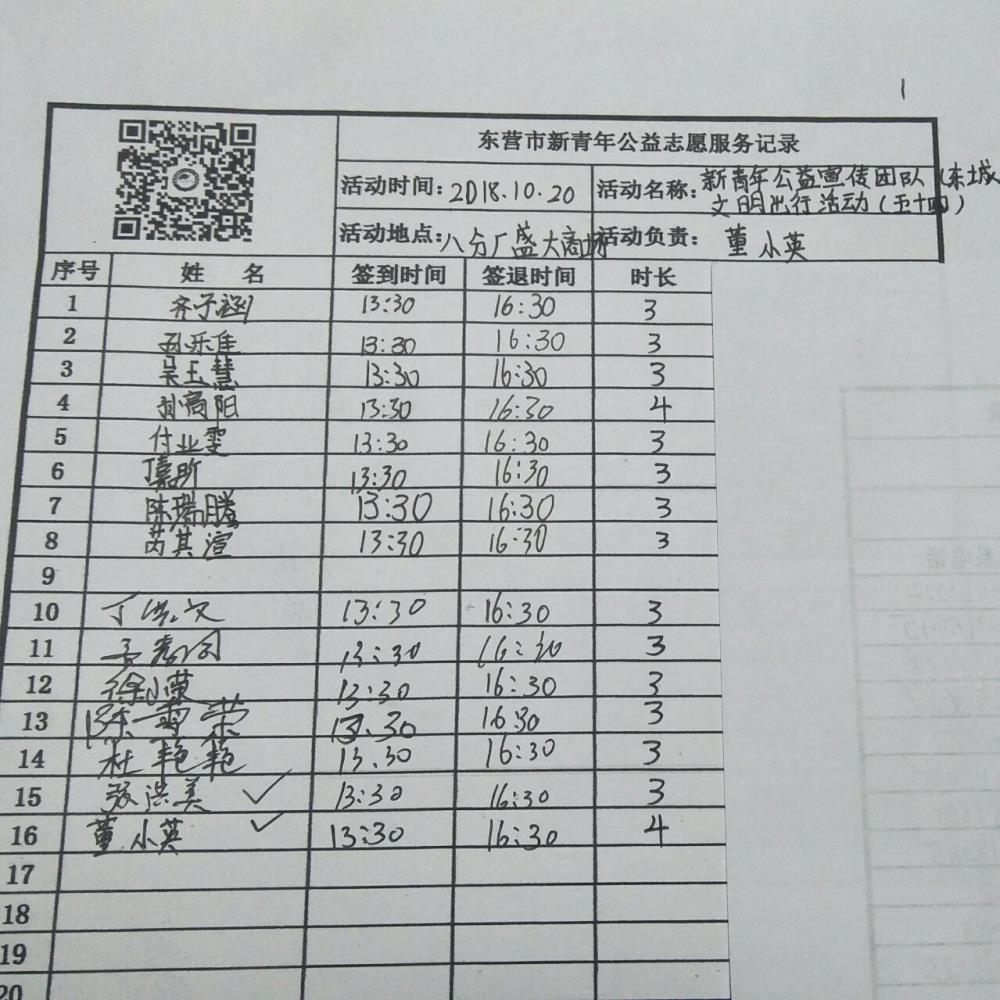 1
东营市新青年公益志愿服务记录
活动时间: 2018.10.20 活动名称: 新青年公益宣传团队(东城
文明出行活动(五十四)
活动地点: 八分厂盛大商场 活动负责: 董小英
序号 姓 名 签到时间 签退时间 时长
1 齐子涵 13:30 16:30 3
2 孙乐佳 13:30 16:30 3
3 吴玉慧 13:30 16:30 3
4 孙商阳 13:30 16:30 4
5 付业雯 13:30 16:30 3
6 13:30 16:30 3
7 陈瑞腾 13:30 16:30 3
8 芮其渲 13:30 16:30 3
9
10 丁洪文 13:30 16:30 3
11 13:30 16:30 3
12 徐小荣 13:30 16:30 3
13 陈荣 13.30 16:30 3
14 杜艳艳 13.30 16:30 3
15 张洪美 ✓ 13:30 16:30 3
16 董小英 ✓ 13:30 16:30 4
17
18
19
20